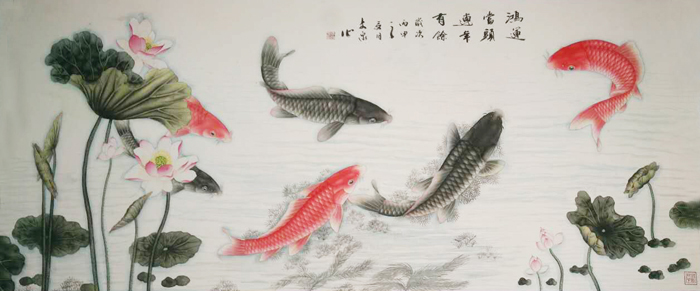 鴻運
當頭
連年
有餘
歲次
丙申
之